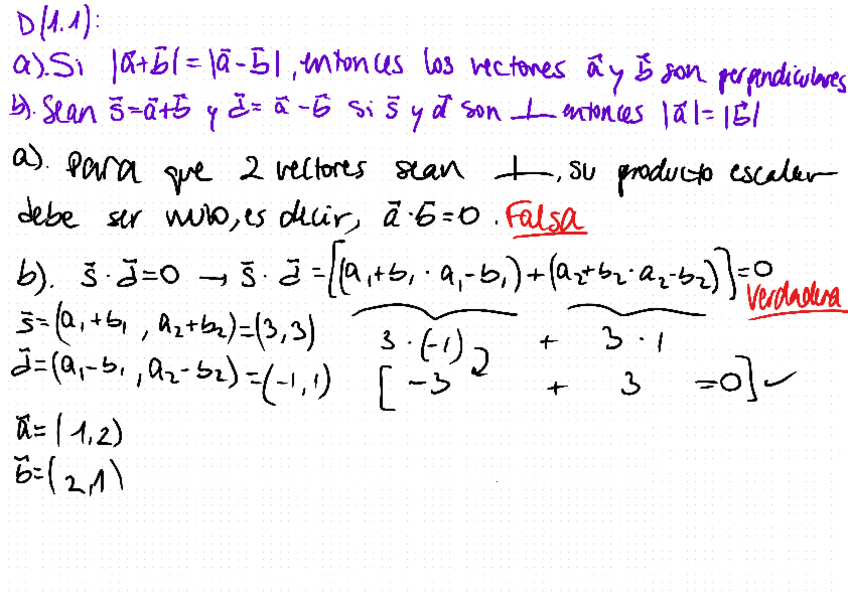 D(1.1):
a). Si |a⃗+b⃗| = |a⃗-b⃗|, entonces los vectores a⃗ y b⃗ son perpendiculares
b). Sean s⃗=a⃗+b⃗ y d⃗= a⃗-b⃗ si s⃗ y d⃗ son ⊥ entonces |a⃗|=|b⃗|
a). Para que 2 vectores sean ⊥, su producto escalar
debe ser nulo, es decir, a⃗·b⃗=0. Falsa
b). s⃗·d⃗=0 → s⃗·d⃗=[(a₁+b₁·a₁-b₁)+(a₂+b₂·a₂-b₂)]=0 Verdadera
s⃗=(a₁+b₁, a₂+b₂)=(3,3) 3·(-1) + 3·1
d⃗=(a₁-b₁, a₂-b₂)=(-1,1) [-3 + 3 =0] ✓
a⃗=(1,2)
b⃗=(2,1)